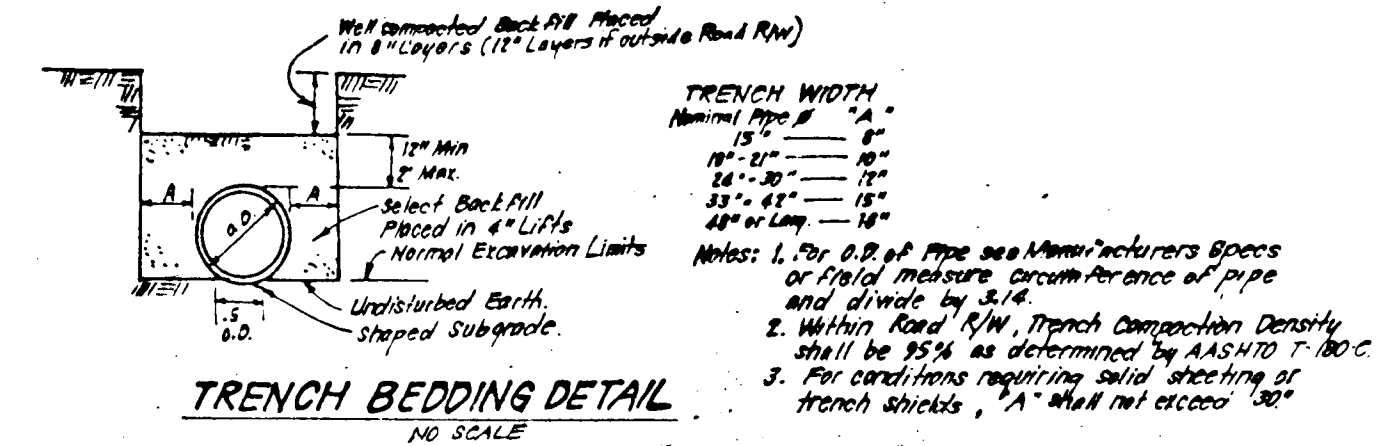 Well compacted Back fill Placed
in 8" Layers (12" Layers if outside Road R/W)
12" Min
2' Max.
A
A
O.D.
Select Back fill
Placed in 4" Lifts
Normal Excavation Limits
Undisturbed Earth.
Shaped Subgrade.
.5
O.D.
TRENCH BEDDING DETAIL
NO SCALE
TRENCH WIDTH
Nominal Pipe Ø "A"
15" — 8"
18" - 21" — 10"
24" - 30" — 12"
33" - 42" — 15"
48" or — 18"
Notes: 1. For O.D. of Pipe see Manufacturers Specs
or field measure circumference of pipe
and divide by 3.14.
2. Within Road R/W, Trench Compaction Density
shall be 95% as determined by AASHTO T-180-C.
3. For conditions requiring solid sheeting or
trench shields, "A" shall not exceed 30"